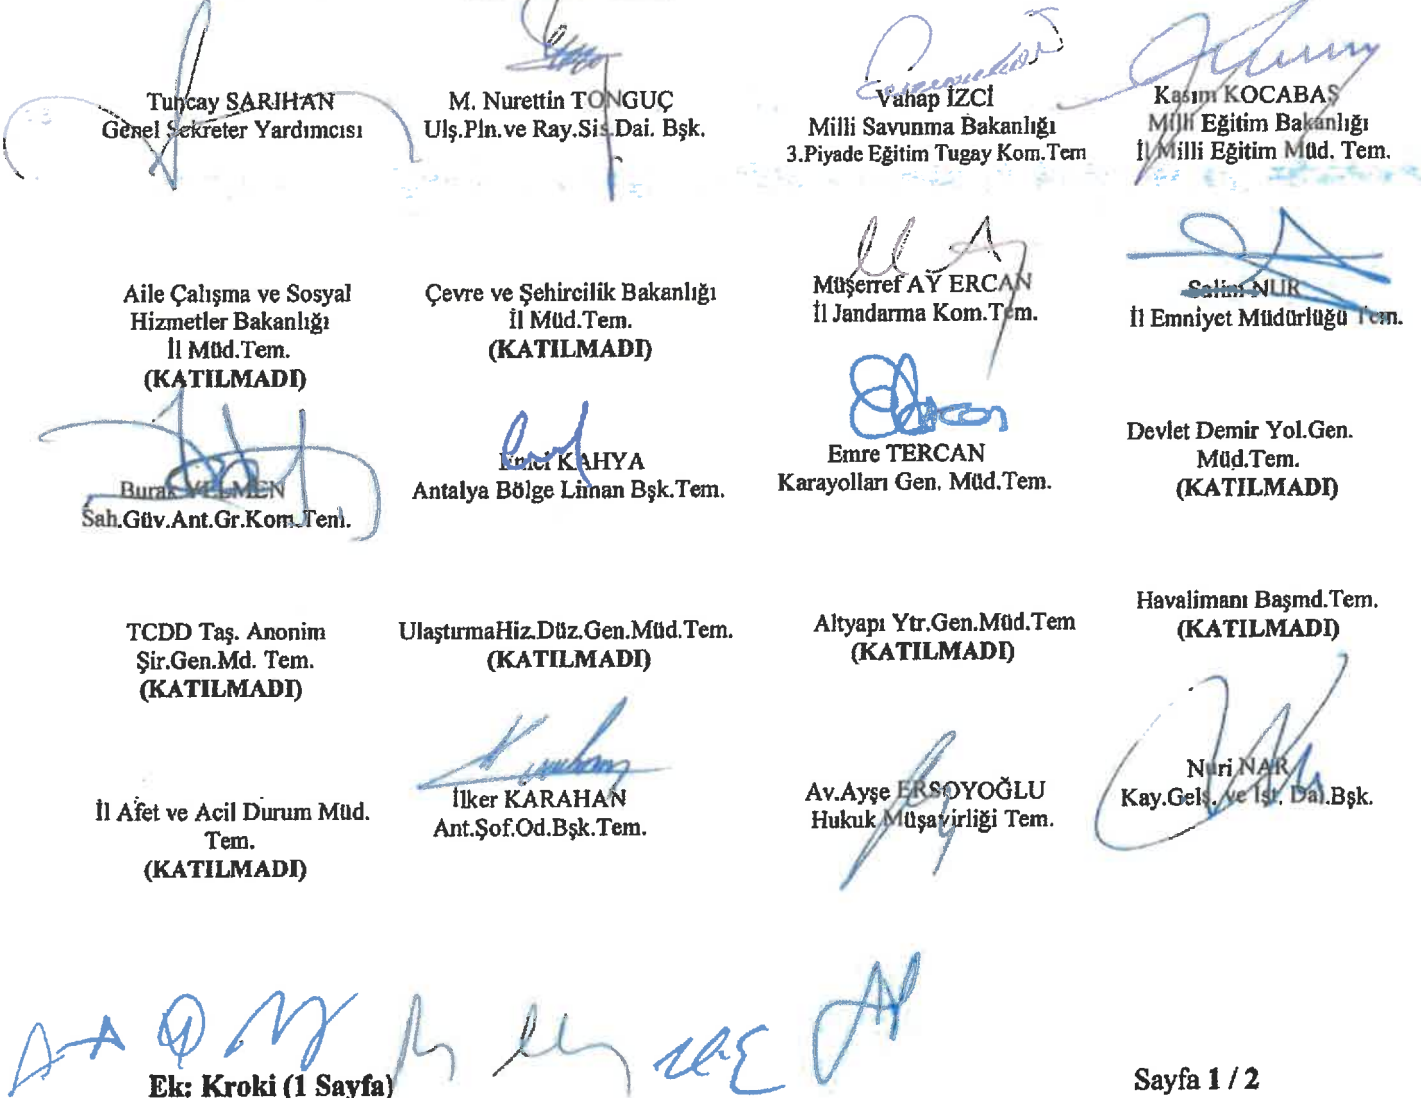 Tuncay SARIHAN
Genel Sekreter Yardımcısı
M. Nurettin TONGUÇ
Ulş.Pln.ve Ray.Sis.Dai. Bşk.
Vahap İZCİ
Milli Savunma Bakanlığı
3.Piyade Eğitim Tugay Kom.Tem
Kasım KOCABAŞ
Milli Eğitim Bakanlığı
İl Milli Eğitim Müd. Tem.
Aile Çalışma ve Sosyal
Hizmetler Bakanlığı
İl Müd.Tem.
(KATILMADI)
Çevre ve Şehircilik Bakanlığı
İl Müd.Tem.
(KATILMADI)
Müşerref AY ERCAN
İl Jandarma Kom.Tem.
Salim NUR
İl Emniyet Müdürlüğü Tem.
Burak YELMEN
Sah.Güv.Ant.Gr.Kom.Tem.
KAHYA
Antalya Bölge Liman Bşk.Tem.
Emre TERCAN
Karayolları Gen. Müd.Tem.
Devlet Demir Yol.Gen.
Müd.Tem.
(KATILMADI)
TCDD Taş. Anonim
Şir.Gen.Md. Tem.
(KATILMADI)
UlaştırmaHiz.Düz.Gen.Müd.Tem.
(KATILMADI)
Altyapı Ytr.Gen.Müd.Tem
(KATILMADI)
Havalimanı Başmd.Tem.
(KATILMADI)
İl Afet ve Acil Durum Müd.
Tem.
(KATILMADI)
İlker KARAHAN
Ant.Şof.Od.Bşk.Tem.
Av.Ayşe ERSOYOĞLU
Hukuk Müşavirliği Tem.
Nuri NAR
Kay.Gelş. ve İşt. Dai.Bşk.
Ek: Kroki (1 Sayfa)
Sayfa 1 / 2